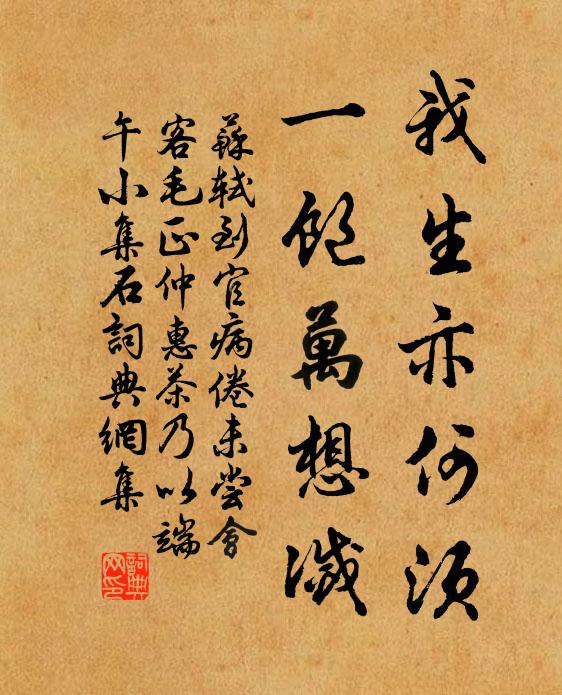 我生亦何須
一飽萬想滅
蘇軾到官病倦未嘗會
客毛正仲惠茶乃以端
午小集石詞典網集
詞典網印